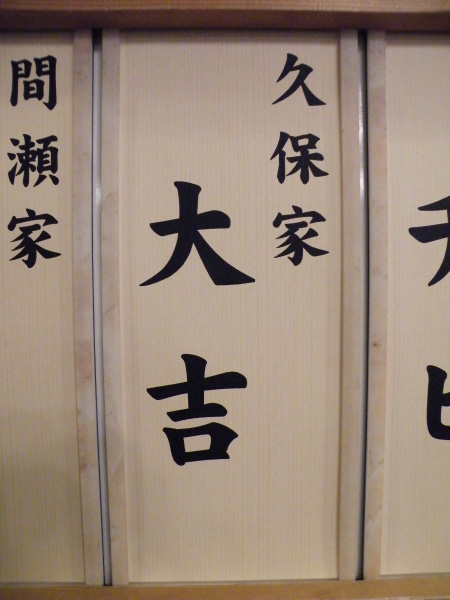 久保家
大吉
間瀬家